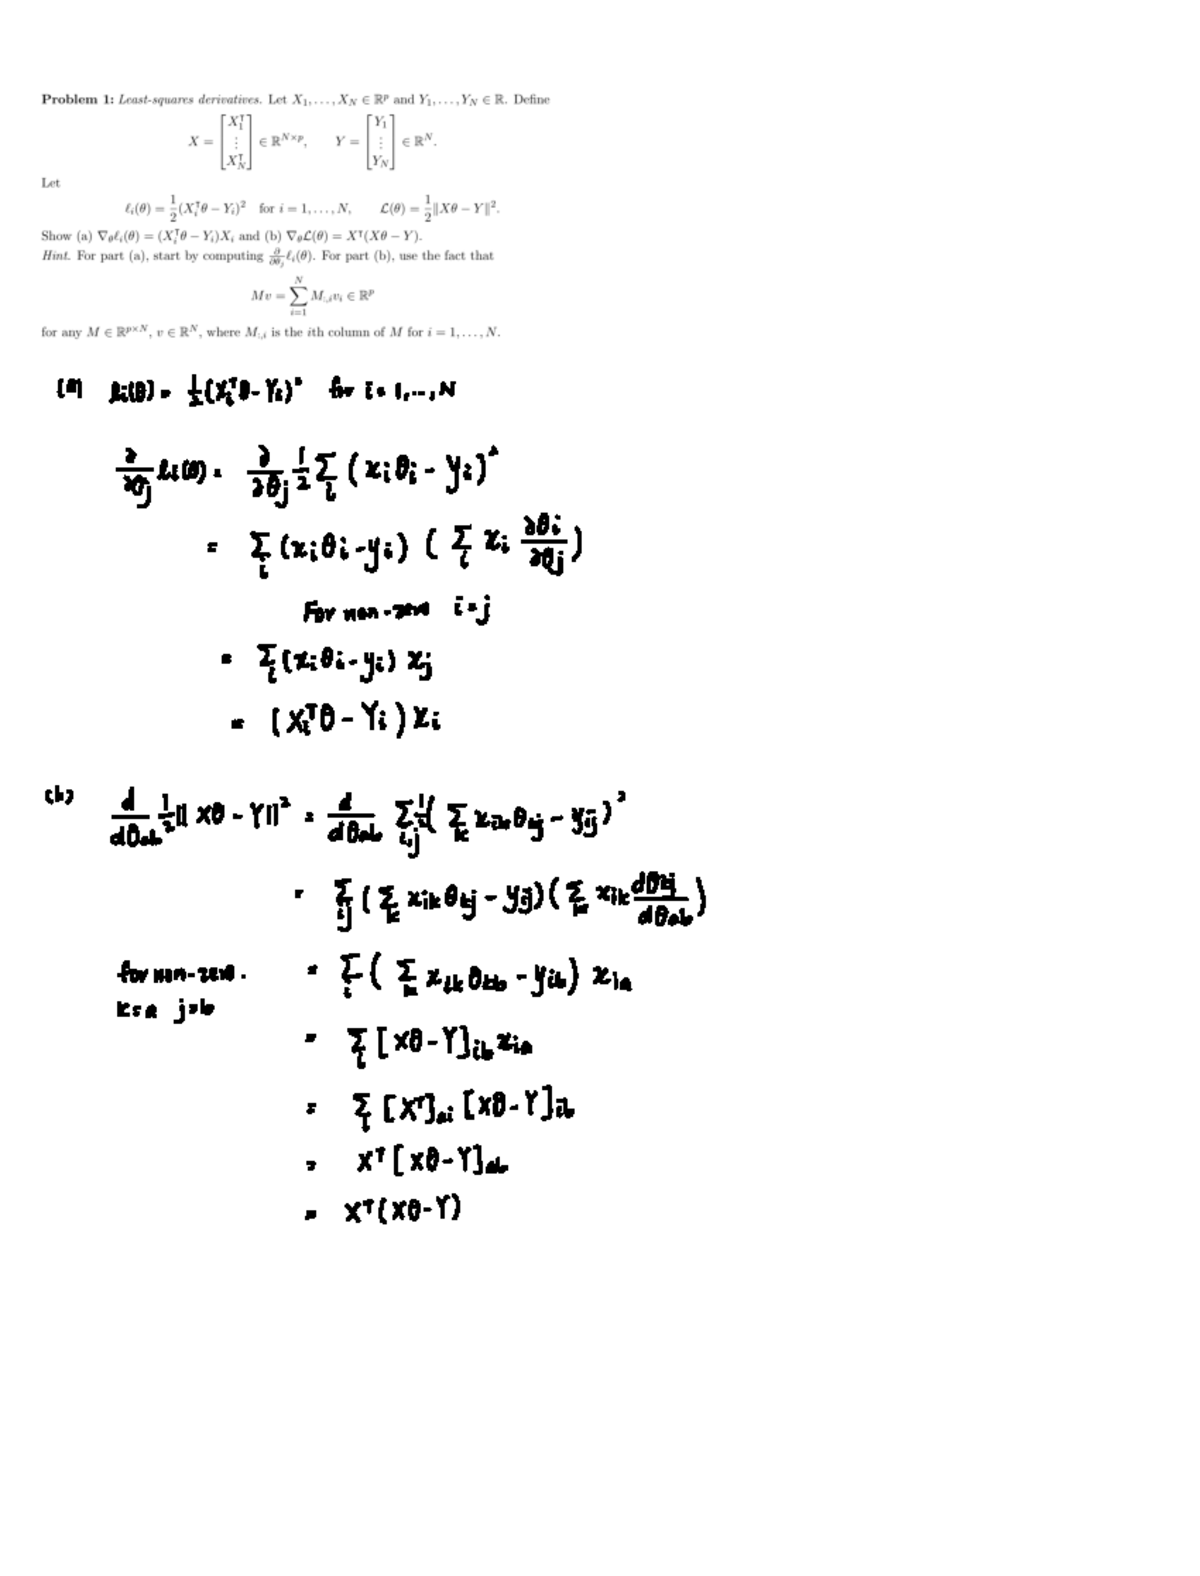 Problem 1: Least-squares derivatives. Let X₁, . . . , X_N ∈ ℝᵖ and Y₁, . . . , Y_N ∈ ℝ. Define
X = [X₁ᵀ ⋮ X_Nᵀ] ∈ ℝ^{N×p}, Y = [Y₁ ⋮ Y_N] ∈ ℝ^N.
Let
ℓᵢ(θ) = 1/2 (Xᵢᵀθ − Yᵢ)² for i = 1, . . . , N, ℒ(θ) = 1/2 ‖Xθ − Y‖².
Show (a) ∇_θ ℓᵢ(θ) = (Xᵢᵀθ − Yᵢ)Xᵢ and (b) ∇_θ ℒ(θ) = Xᵀ(Xθ − Y).
Hint. For part (a), start by computing ∂/∂θⱼ ℓᵢ(θ). For part (b), use the fact that
Mv = ∑_{i=1}^{N} M_{:,i} vᵢ ∈ ℝᵖ
for any M ∈ ℝ^{p×N}, v ∈ ℝ^N, where M_{:,i} is the ith column of M for i = 1, . . . , N.
(a) ℓi(θ) = 1/2 (Xᵢᵀθ − Yᵢ)² for i = 1, ..., N
∂/∂θj ℓi(θ) = ∂/∂θj 1/2 Σ_i (xᵢθᵢ − yᵢ)²
= Σ_i (xᵢθᵢ − yᵢ) (Σ_i xᵢ ∂θi/∂θj)
For non-zero i=j
= Σ_i (xᵢθᵢ − yᵢ) xⱼ
= (Xᵢᵀθ − Yᵢ) xᵢ
(b) d/dθ_ab 1/2 ‖Xθ − Y‖² = d/dθ_ab Σ_{i,j} 1/2 (Σ_k x_ik θ_kj − y_ij)²
= Σ_{ij} (Σ_k x_ik θ_kj − y_ij)(Σ_k x_ik dθ_kj/dθ_ab)
for non-zero. = Σ_i (Σ_k x_ik θ_kb − y_ib) x_ia
k=a j=b
= Σ_i [Xθ − Y]_ib x_ia
= Σ_i [Xᵀ]_ai [Xθ − Y]_ib
= Xᵀ[Xθ − Y]_ab
= Xᵀ(Xθ − Y)